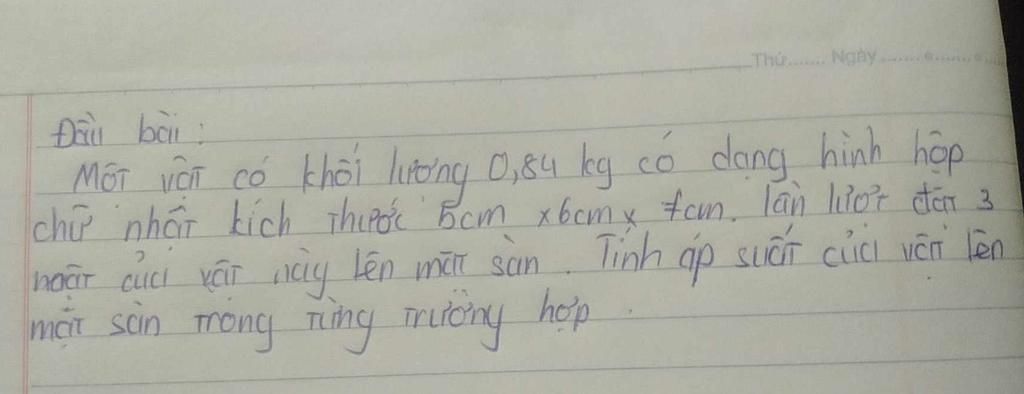 Thứ....... Ngày
Đầu bài :
Một vật có khối lương 0,84 kg có dạng hình hộp
chữ nhật kích thước 5cm x6cm x 7cm. lần lượt đặt 3
mặt của vật này lên mặt sàn. Tính áp suất của vật lên
mặt sàn trong từng trường hợp.